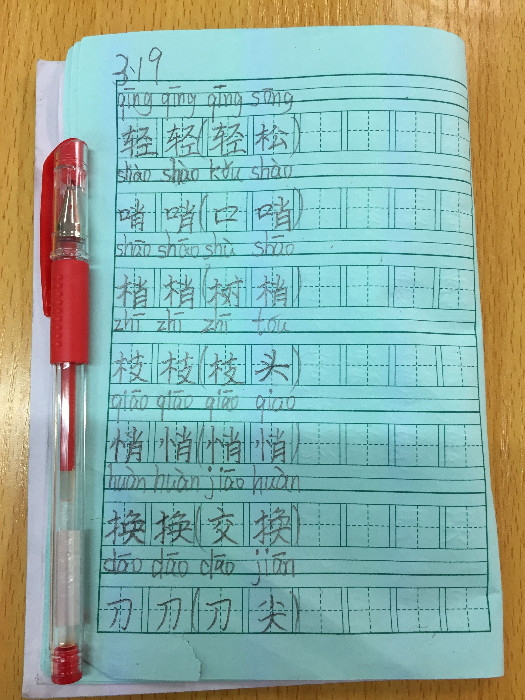 3.19
qīng qīng qīng sōng
轻轻(轻松)
shào shào kǒu shào
哨哨(口哨)
shāo shāo shù shāo
梢梢(树梢)
zhī zhī zhī tóu
枝枝(枝头)
qiāo qiāo qiāo qiāo
悄悄(悄悄)
huàn huàn jiāo huàn
换换(交换)
dāo dāo dāo jiān
刀刀(刀尖)